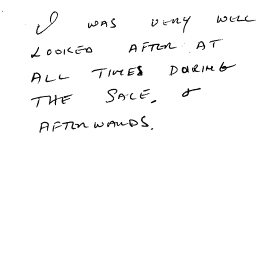 I WAS VERY WELL
LOOKED AFTER AT
ALL TIMES DURING
THE SALE, &
AFTERWARDS.